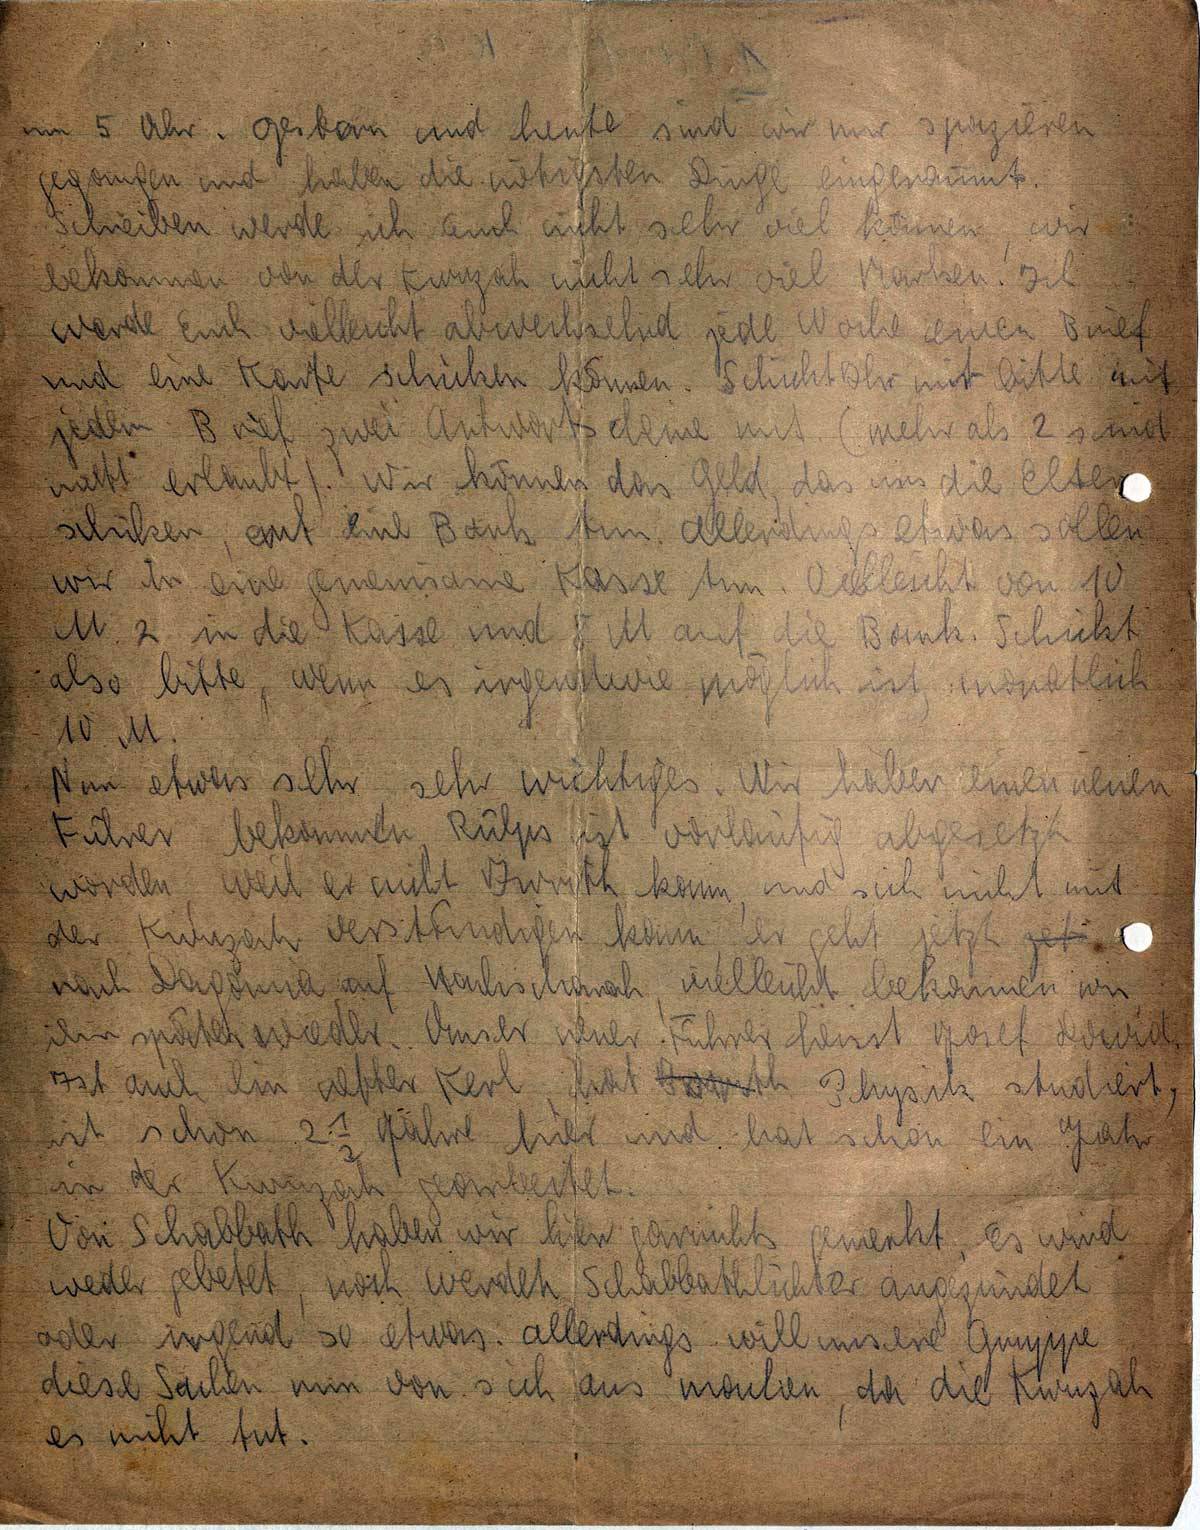 um 5 Uhr. Gestern und heute sind wir nur spazieren
gegangen und haben die nötigsten Dinge eingeräumt.
Schreiben werde ich auch nicht sehr viel können, wir
bekommen von der Kwuzah nicht sehr viel Marken. Ich
werde Euch vielleicht abwechselnd jede Woche einen Brief
und eine Karte schicken können. Schickt Ihr mir bitte mit
jedem Brief zwei Antwortscheine mit (mehr als 2 sind
nicht erlaubt). Wir können das Geld, das uns die Eltern
schicken, auf eine Bank tun. Allerdings etwas sollen
wir in eine gemeinsame Kasse tun. Vielleicht von 10
M. 2 in die Kasse und 8 M auf die Bank. Schickt
also bitte, wenn es irgendwie möglich ist, monatlich
10 M.
Nun etwas sehr sehr wichtiges. Wir haben einen neuen
Führer bekommen, Rülps ist vorläufig abgesetzt
worden, weil er nicht Iwrith kann, und sich nicht mit
der Kwuzah verständigen kann, er geht jetzt
nach Dagania auf Hachscharah, vielleicht bekommen wir
ihn später wieder. Unser neuer Führer heisst Josef David.
Ist auch ein netter Kerl, hat Physik studiert,
ist schon 2 1/2 Jahre hier und hat schon ein Jahr
in der Kwuzah gearbeitet.
Von Schabbath haben wir hier garnichts gemerkt, es wird
weder gebetet, noch werden Schabbathlichter angezündet
oder irgend so etwas. Allerdings will unsere Gruppe
diese Sachen nun von sich aus machen, da die Kwuzah
es nicht tut.